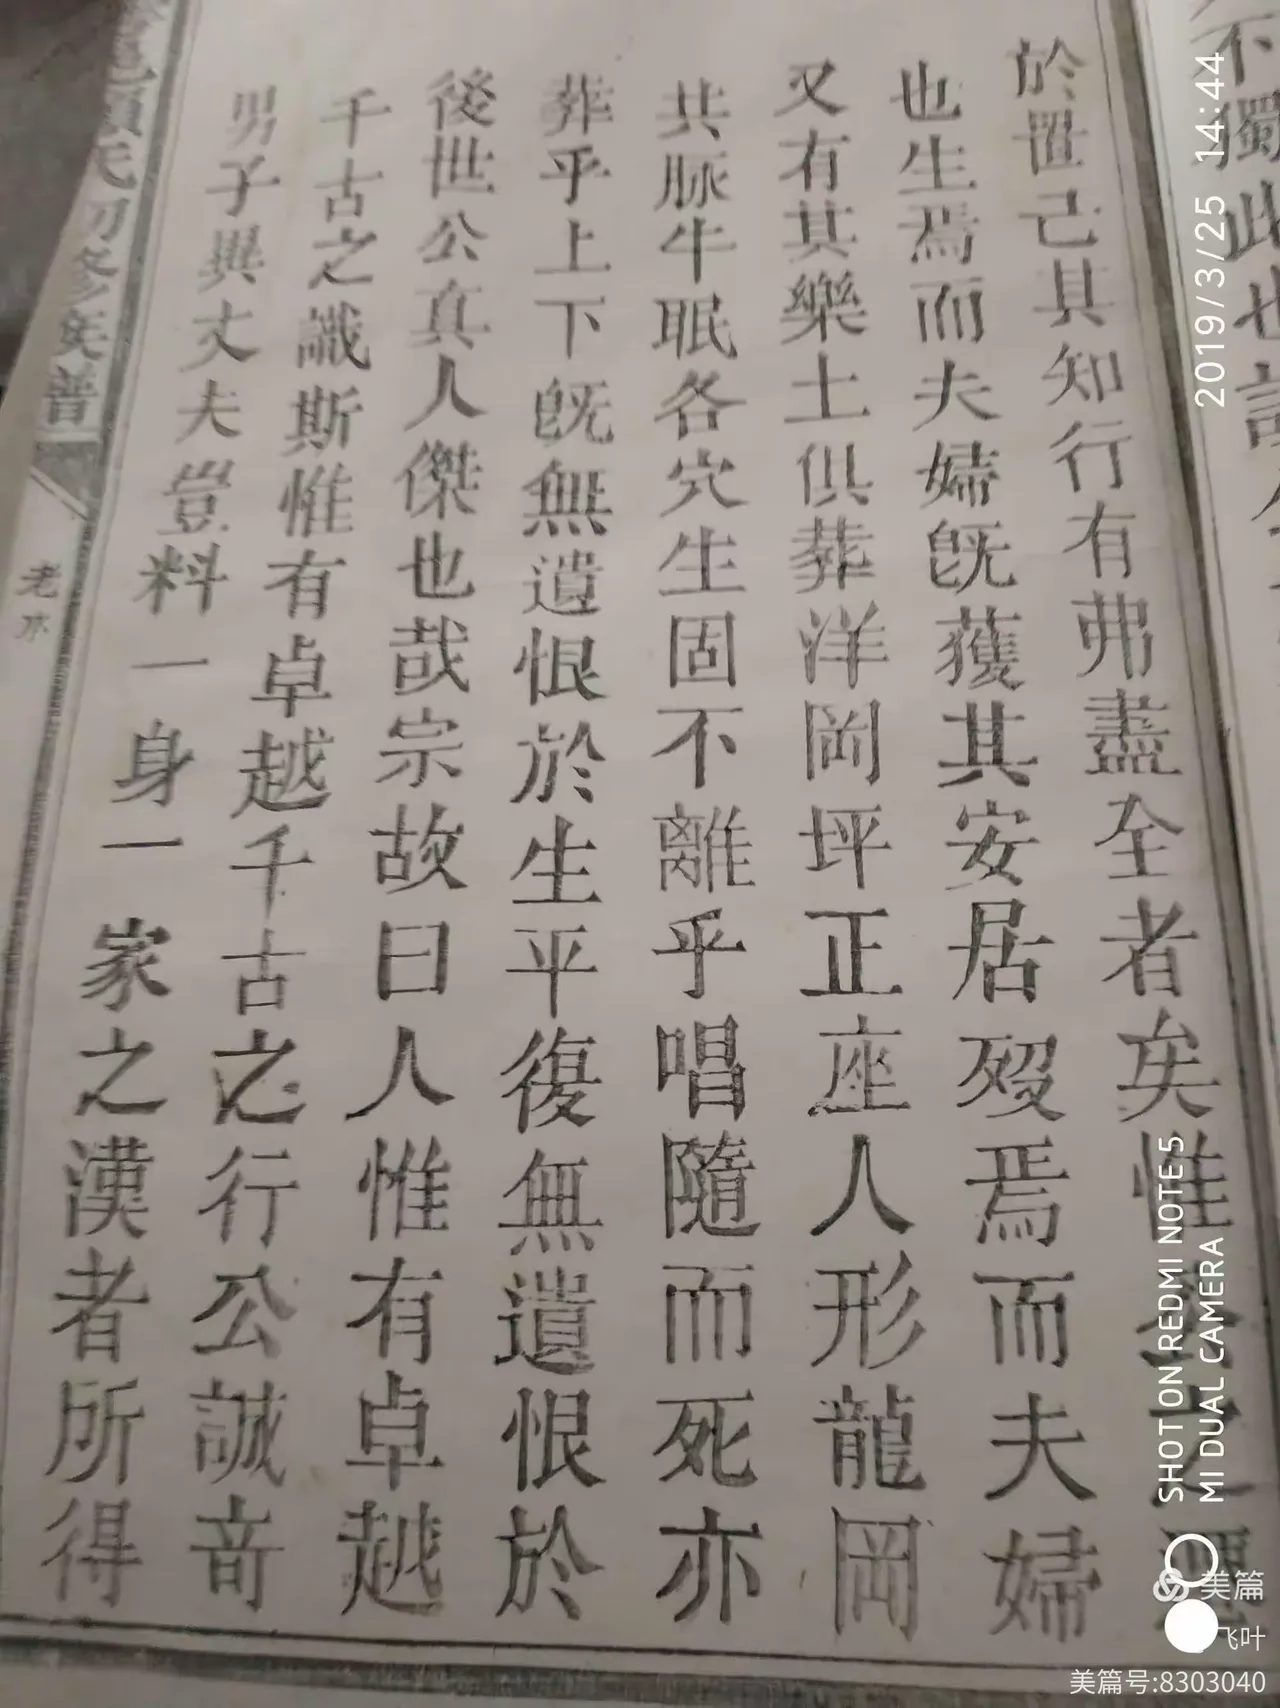 不獨此也
於置己其知行有弗盡全者矣惟
也生焉而夫婦既獲其安居歿焉而夫婦
又有其樂土俱葬洋岡坪正座人形龍岡
共脈牛眠各穴生固不離乎唱隨而死亦
葬乎上下旣無遺恨於生平復無遺恨於
後世公真人傑也哉宗故曰人惟有卓越
千古之識斯惟有卓越千古之行公誠奇
男子異丈夫豈料一身一家之漢者所得
氏初修族譜
老水
2019/3/25 14:44
SHOT ON REDMI NOTE 5
MI DUAL CAMERA
美篇
飞叶
美篇号:8303040